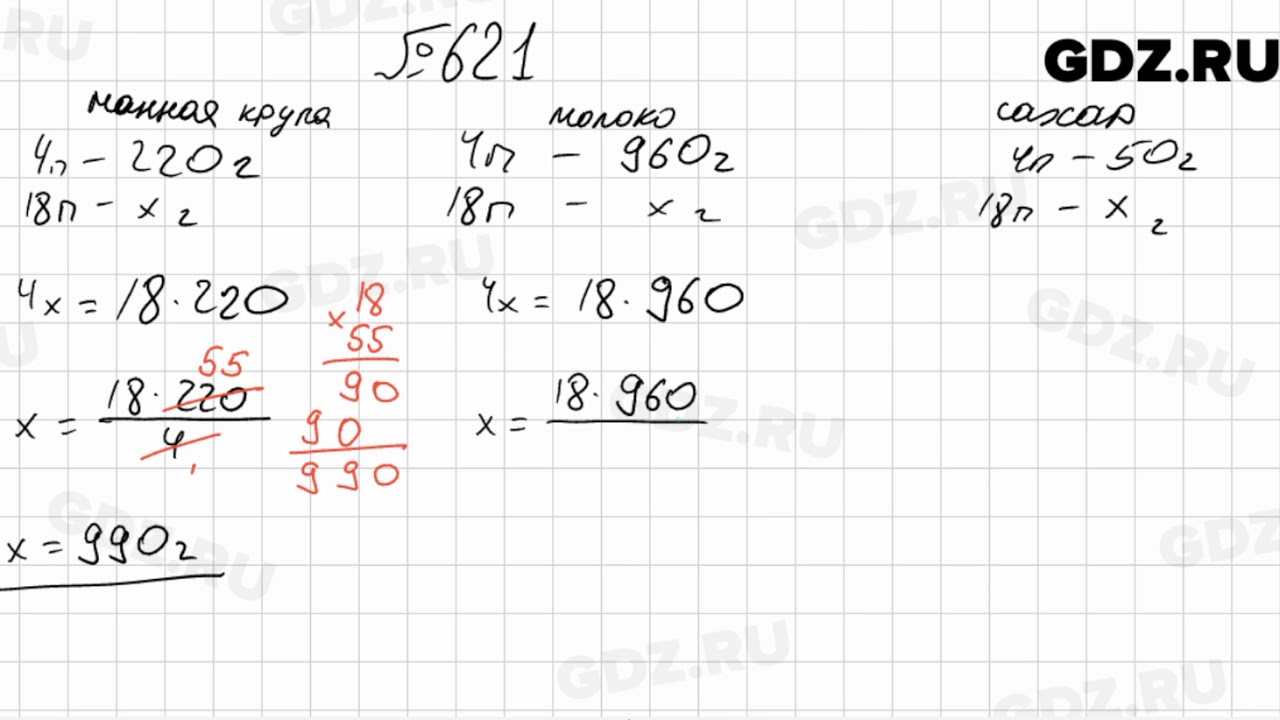 №621
GDZ.RU
манная крупа
4п - 220 г
18п - x г
4x = 18·220
x = 18·220 / 4
55
1
18
× 55
90
90
990
x = 990 г
молоко
4п - 960 г
18п - x г
4x = 18·960
x = 18·960
сахар
4п - 50 г
18п - x г